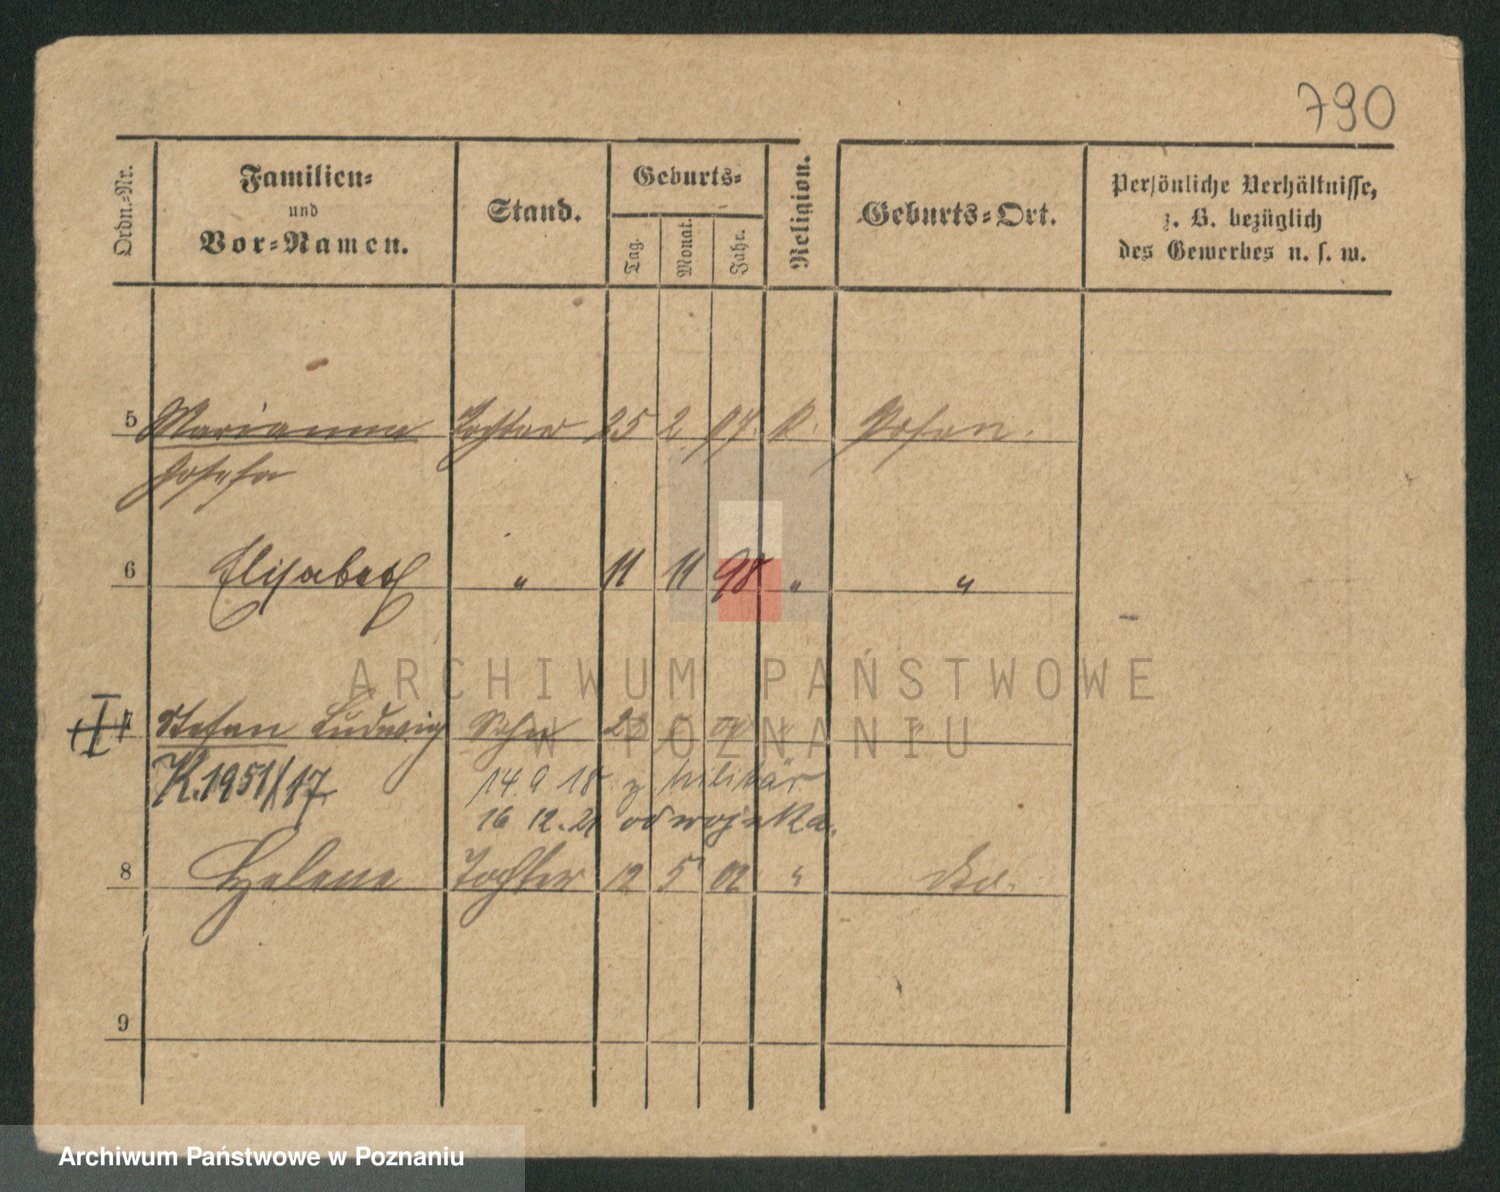 790
Ordn.-Nr.
Familien-
und
Vor-Namen.
Stand.
Geburts-
Tag.
Monat.
Jahr.
Religion.
Geburts-Ort.
Persönliche Verhältnisse,
z. B. bezüglich
des Gewerbes u. s. w.
5 Marianna Tochter 25 2 97. K. Posen.
Josefa
6 Elisabeth " 11 11 98 " "
Stefan Ludwig Sohn 23
K.1951/17.
14.9 18 z Militär
16 12. 21 od wojska.
8 Helene Tochter 12 5 02 " do.
9
ARCHIWUM PAŃSTWOWE
W POZNANIU
Archiwum Państwowe w Poznaniu